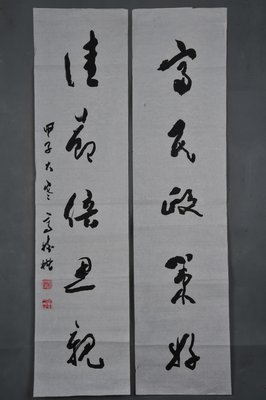 富民政策好
佳节倍思親
甲子大寒